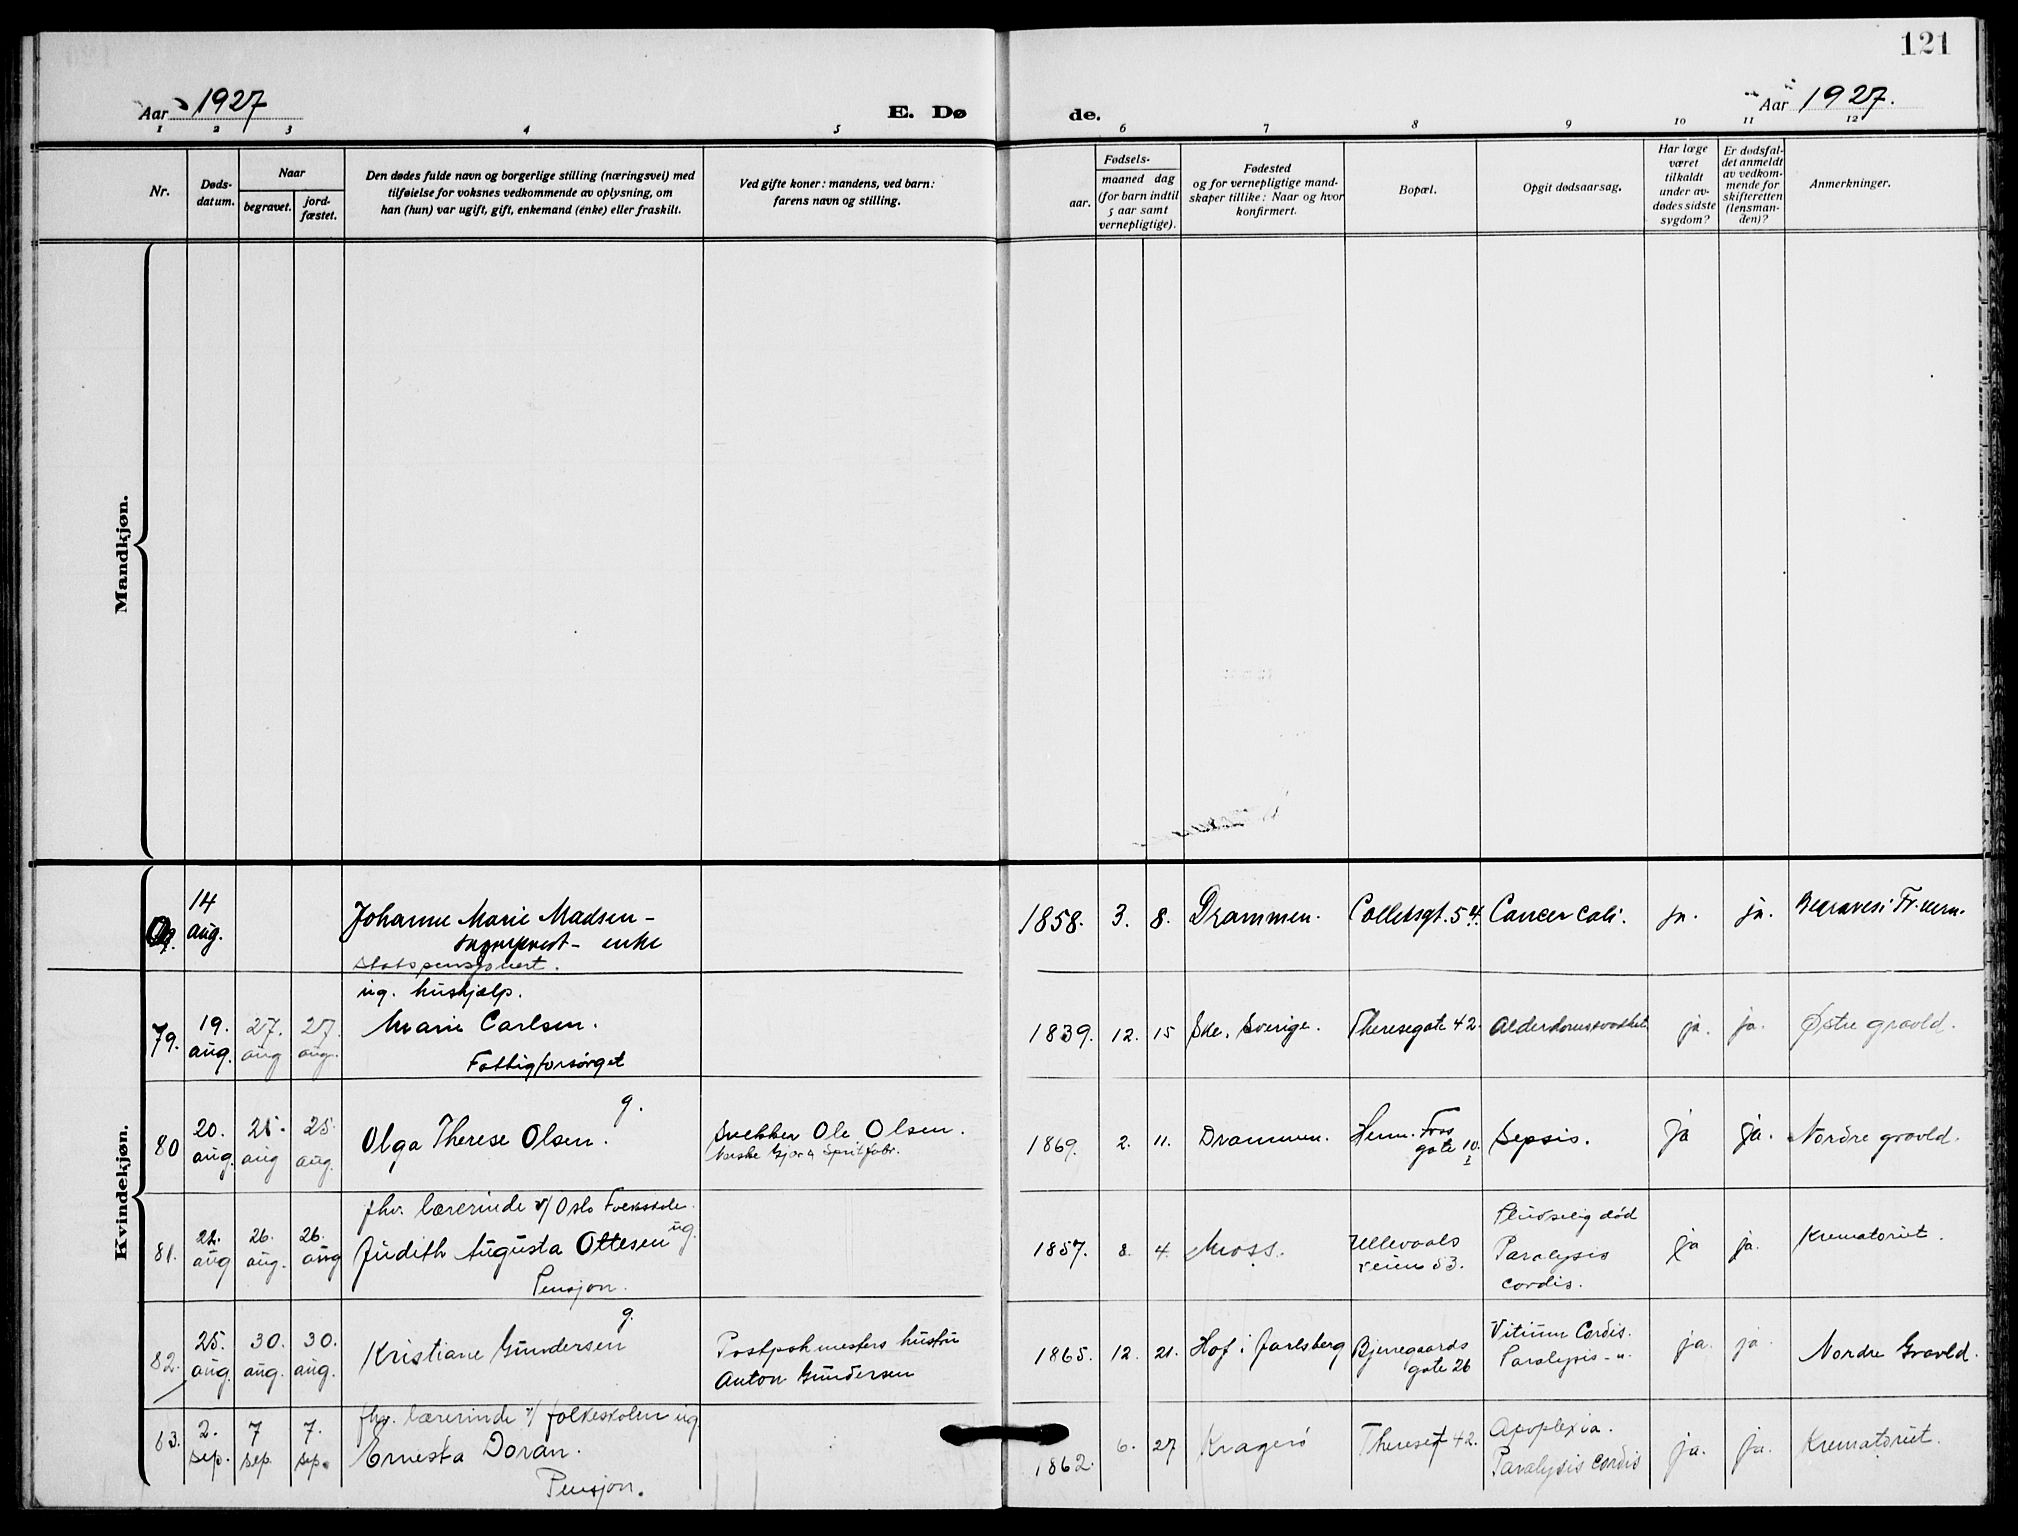 121
Aar 1927
E. Dø
de.
Aar 1927.
1 2 3 4 5 6 7 8 9 10 11 12
Nr.
Døds-
datum.
Naar
begravet.
jord-
fæstet.
Den dødes fulde navn og borgerlige stilling (næringsvei) med
tilføielse for voksnes vedkommende av oplysning, om
han (hun) var ugift, gift, enkemand (enke) eller fraskilt.
Ved gifte koner: mandens, ved barn:
farens navn og stilling.
Fødsels-
aar.
maaned dag
(for barn indtil
5 aar samt
vernepligtige).
Fødested
og for vernepligtige mand-
skaper tillike: Naar og hvor
konfirmert.
Bopæl.
Opgit dødsaarsag.
Har læge
været
tilkaldt
under av-
dødes sidste
sygdom?
Er dødsfal-
det anmeldt
av vedkom-
mende for
skifteretten
(lensman-
den)?
Anmerkninger.
Mandkjøn.
Kvindekjøn.
14
aug.
Johanne Marie Madsen -
sogneprest - enke
Statspensjonert.
1858. 3. 8. Drammen. Colletsgt. 54. Cancer coli. ja. ja. Begraves i Fr.vern.
ug. hushjælp.
79. 19. 27. 27.
aug. aug aug.
Marie Carlsen.
Fattigforsørget
1839. 12. 15 Ske. Sverige. Theresegate 42. Alderdomssvakhet ja. ja. Østre gravld.
g.
80 20. 25. 25.
aug. aug aug.
Olga Therese Olsen.
Snekker Ole Olsen.
Norske Gjær & Spritfabr.
1869. 2. 11. Drammen. Herm. Foss
gate 10.
I
Sepsis. ja ja. Nordre gravld.
fhv. lærerinde v/ Oslo Folkeskole.
81. 22. 26. 26.
aug aug. aug
Judith Augusta Ottesen ug.
Pensjon.
1857. 8. 4. Moss. Ullevaals
veien 53.
Pludselig død
Paralysis
cordis.
ja ja. Krematoriet.
g.
82. 25. 30. 30.
aug. aug. aug.
Kristiane Gundersen
Postpakmesters hustru
Anton Gundersen
1865. 12. 21. Hof i Jarlsberg Bjerregaards
gate 26
Vitium Cordis.
Paralysis - "
ja. ja Nordre Gravld.
fhv. lærerinde v/ folkeskolen ug
83. 2. 7 7.
sep. sep sep.
Ernesta Doran.
Pensjon.
1862. 6. 27 Kragerø Theresegt 42. Apoplexia.
Paralysis cordis
ja. ja. Krematoriet.